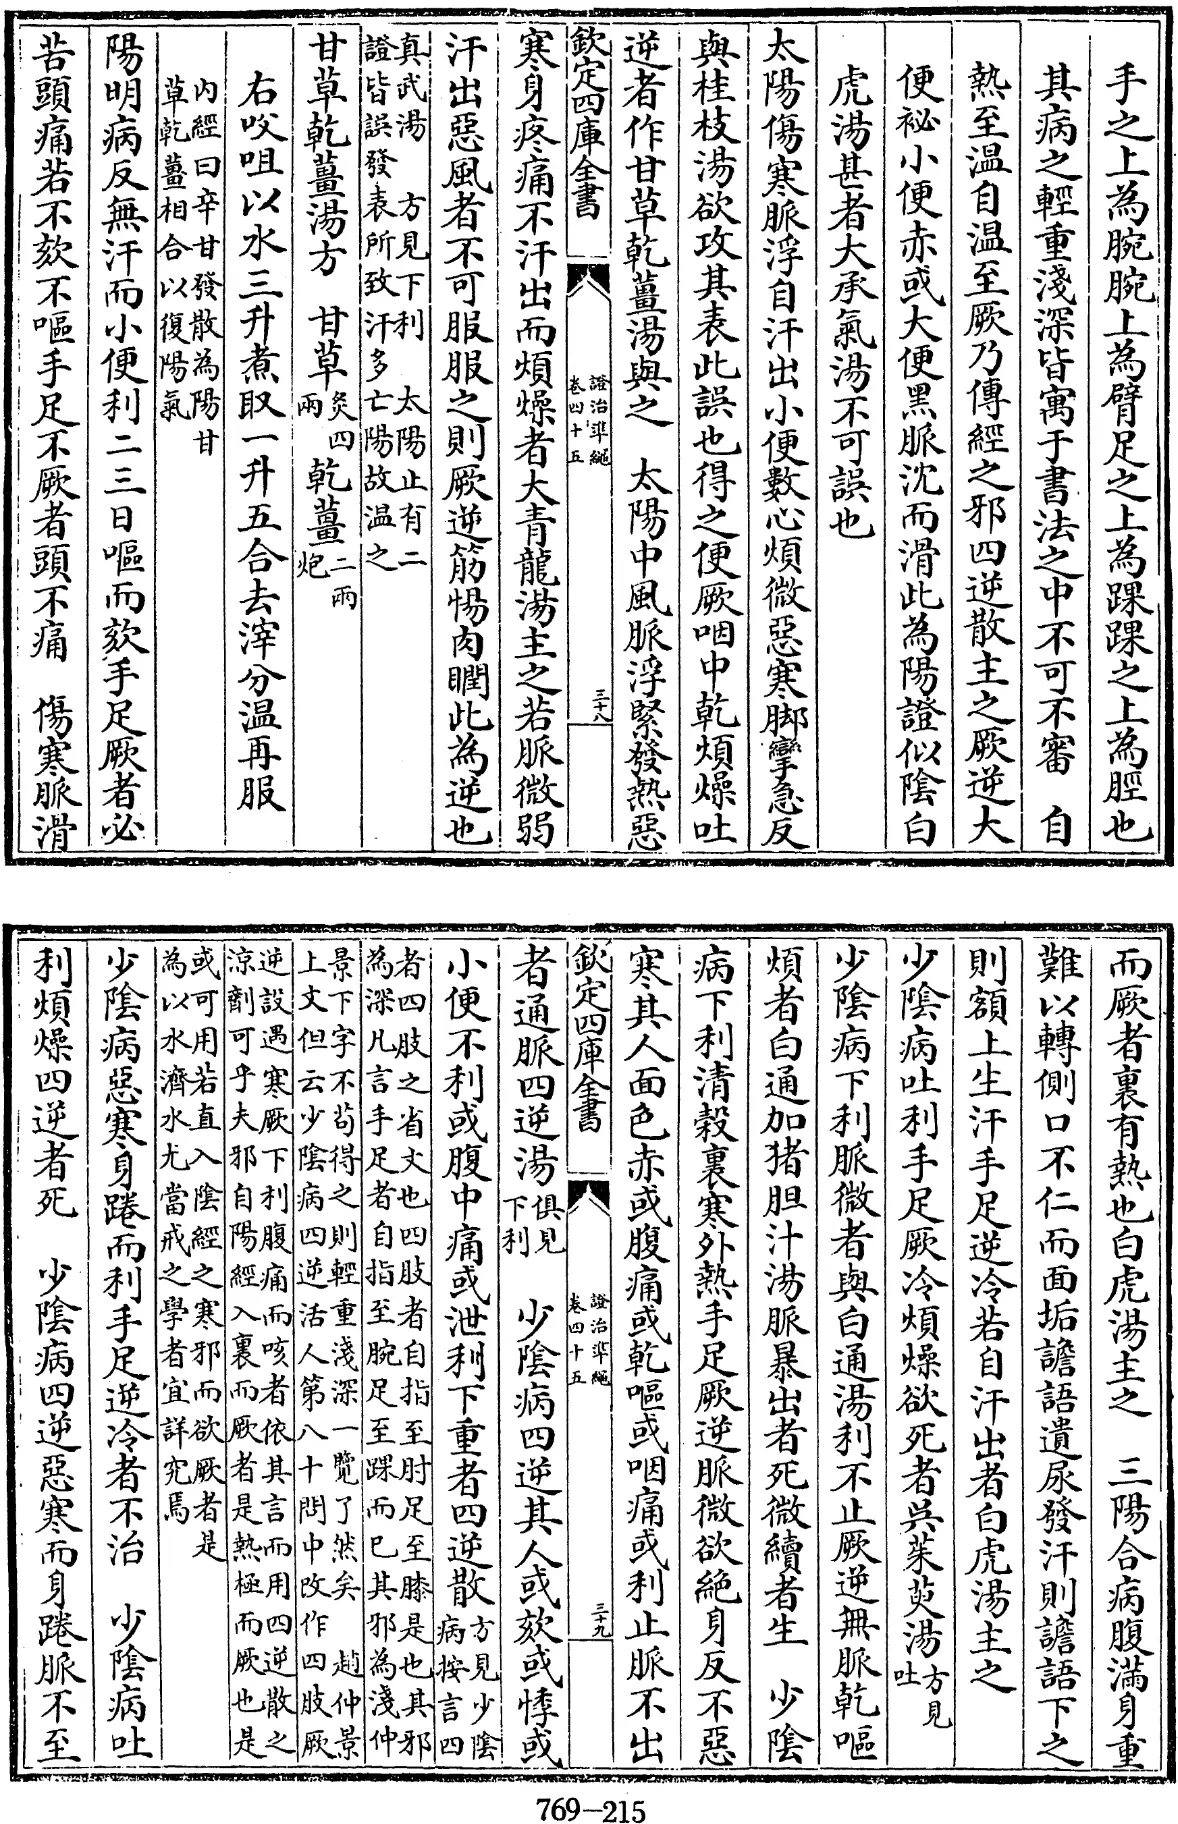 手之上為腕腕上為臂足之上為踝踝之上為脛也
其病之輕重淺深皆寓于書法之中不可不審　自
熱至温自温至厥乃傳經之邪四逆散主之厥逆大
便袐小便赤或大便黑脈沈而滑此為陽證似陰白
虎湯甚者大承氣湯不可誤也
太陽傷寒脈浮自汗出小便數心煩微惡寒脚攣急反
與桂枝湯欲攻其表此誤也得之便厥咽中乾煩燥吐
逆者作甘草乾薑湯與之　太陽中風脈浮緊發熱惡
欽定四庫全書
證治準繩
卷四十五
三十八
寒身疼痛不汗出而煩燥者大青龍湯主之若脈微弱
汗出惡風者不可服服之則厥逆筋惕肉瞤此為逆也
真武湯　方見下利　太陽止有二
證皆誤發表所致汗多亡陽故温之
甘草乾薑湯方　甘草炙四兩　乾薑二兩炮
右㕮咀以水三升煮取一升五合去滓分温再服
内經曰辛甘發散為陽甘
草乾薑相合以復陽氣
陽明病反無汗而小便利二三日嘔而欬手足厥者必
苦頭痛若不欬不嘔手足不厥者頭不痛　傷寒脈滑
而厥者裏有熱也白虎湯主之　三陽合病腹滿身重
難以轉側口不仁而面垢譫語遺尿發汗則譫語下之
則額上生汗手足逆冷若自汗出者白虎湯主之
少陰病吐利手足厥冷煩燥欲死者呉茱萸湯方見吐
少陰病下利脈微者與白通湯利不止厥逆無脈乾嘔
煩者白通加猪胆汁湯脈暴出者死微續者生　少陰
病下利清穀裏寒外熱手足厥逆脈微欲絶身反不惡
寒其人面色赤或腹痛或乾嘔或咽痛或利止脈不出
欽定四庫全書
證治準繩
卷四十五
三十九
者通脈四逆湯俱見下利　少陰病四逆其人或欬或悸或
小便不利或腹中痛或泄利下重者四逆散方見少陰病按言四
者四肢之省文也四肢者自指至肘足至膝是也其邪
為深凡言手足者自指至腕足至踝而已其邪為淺仲
景下字不苟得之則輕重淺深一覽了然矣　趙仲景
上文但云少陰病四逆活人第八十問中改作四肢厥
逆設遇寒厥下利腹痛而咳者依其言而用四逆散之
涼劑可乎夫邪自陽經入裏而厥者是熱極而厥也是
或可用若直入陰經之寒邪而欲厥者是
為以水濟水尤當戒之學者宜詳究焉
少陰病惡寒身踡而利手足逆冷者不治　少陰病吐
利煩燥四逆者死　少陰病四逆惡寒而身踡脈不至
769-215